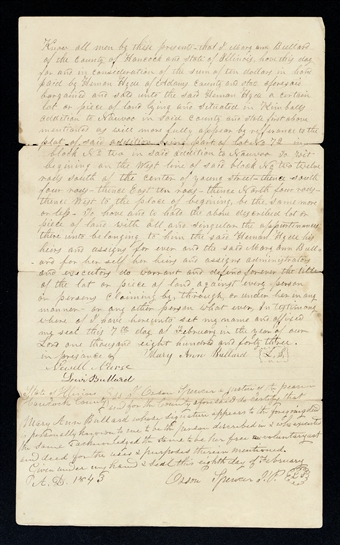 Know all men by these presents that I Mary Ann Bullard
of the County of Hancock and State of Illinois, have this day
for and in consideration of the sum of ten dollars in hand
paid by Heman Hyde of County and State
bargained and sold unto the said Heman Hyde a certain
lot or piece of land lying and situated in Kimballs
addition to Nauvoo in said County and State just above
mentioned as will more fully appear by reference to the
plat of said addition being part of lot No 72 in
block No ten in said addition to Nauvoo to wit
beginning on the West line of said block No ten twelve
rods south of the center of young street thence south
four rods thence East ten rods thence North four rods
thence West to the place of beginning, be the same more
or less. To have and to hold the above described lot or
piece of land with all and singular the appurtenances
there unto belonging to him the said Heman Hyde his
heirs and assigns for ever and the said Mary Ann Bull-
ard for her self her heirs and assigns administrators
and executors do warrant and defend forever the title
of the lot or piece of land against every person
or persons claiming by, through, or under her in any
manner or any other person what ever, in testimony
where of I have hereunto set my name and affixed
my seal this 7th day of February in the year of our
Lord one thousand eight hundred and forty three.
in presence of Mary Ann Bullard L.S.
Newell
Bullard
State of Illinois Orson Spencer a Justice of the peace
County do certify that
Mary Ann Bullard whose signature appears to the foregoing deed
is personally known to me to be the person described in
the same & acknowledged the same to be her free voluntary act
and deed for the uses & purposes therein mentioned.
Given under my hand & seal this eighth day of February
A.D. 1843
Orson Spencer J.P.